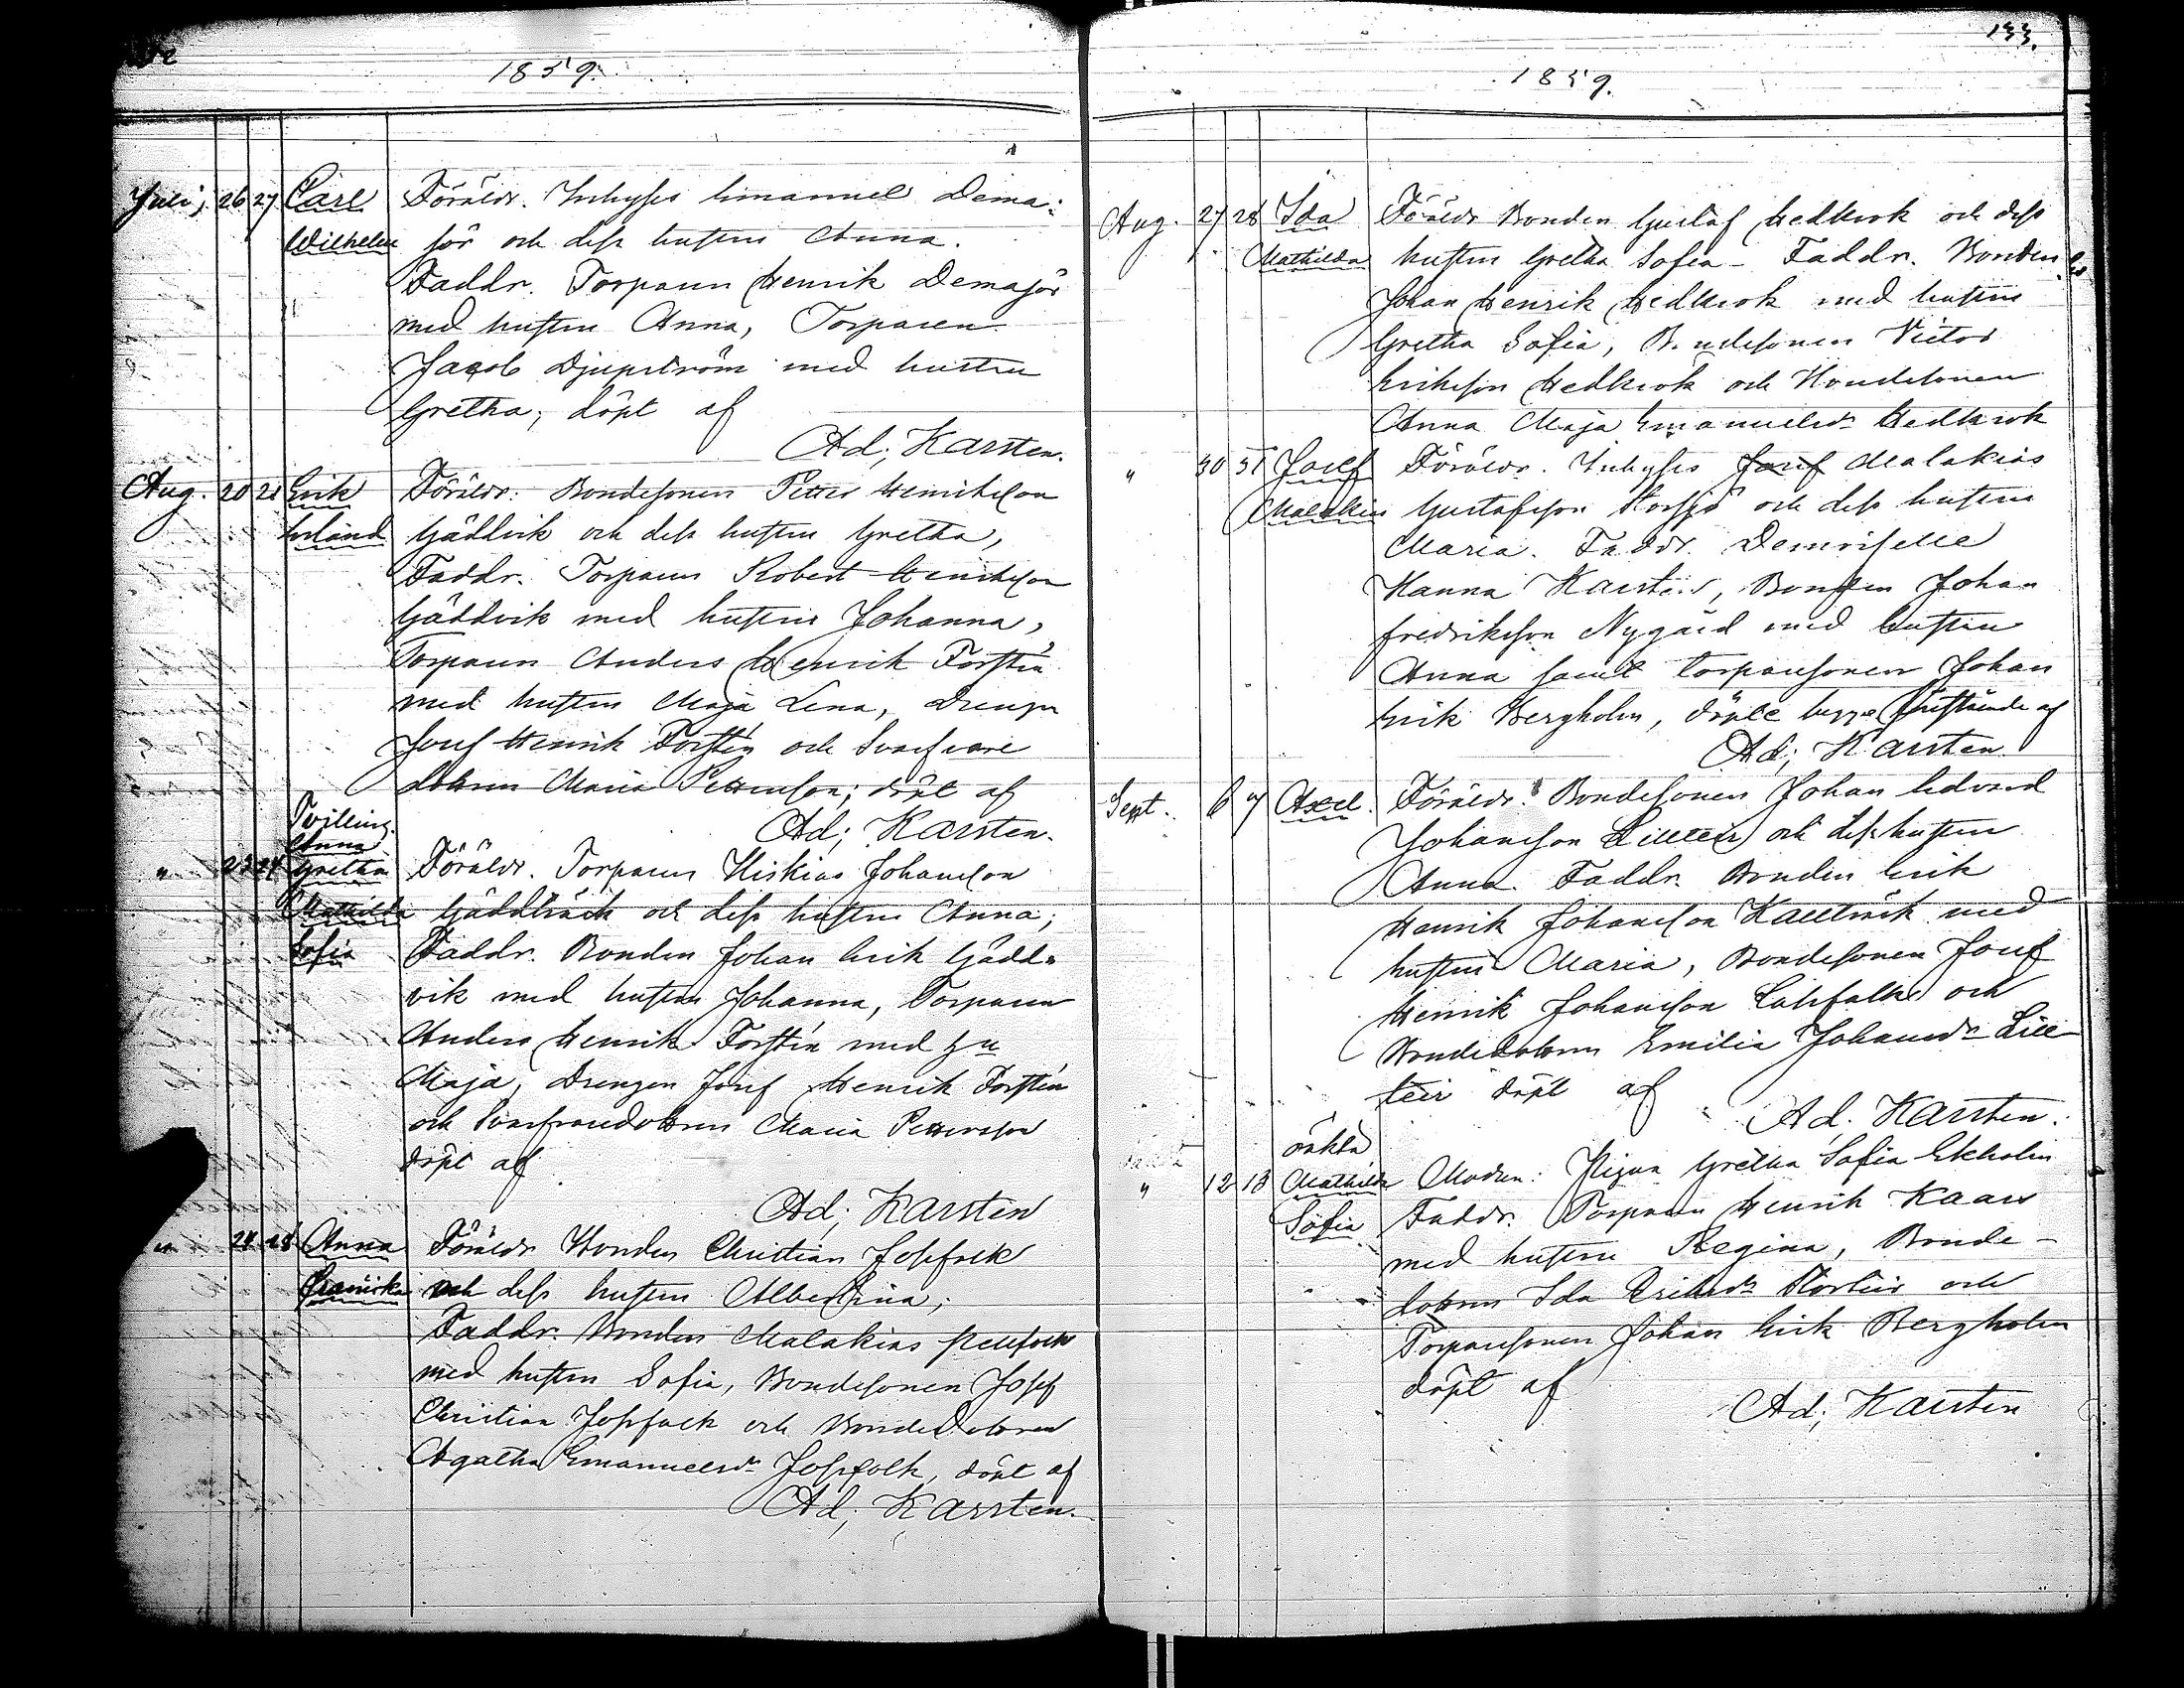 1859.
Juli; 26 27 Carl Föräldr. Inhyses Emanuel Dema-
Wilhelm jör och dess hustru Anna.
Faddr. Torparen Henrik Demajör
med hustru Anna, Torparen
Jacob Djupström med hustru
Gretha; döpt af
Ad; Karsten.
Aug. 20 21 Erik Föräldr. Bondesonen Petter Henrikson
Erland Gäddvik och dess hustru Gretha,
Faddr. Torparen Robert Henrikson
Gäddvik med hustru Johanna,
Torparen Anders Henrik Forstén
med hustru Maja Lena, Drengen
Josef Henrik Forstén och
dottren Maria Petterson; döpt af
Ad; Karsten.
Tvilling.
Anna
" 23 24 Gretha Föräldr. Torparen Hiskias Johanson
Mathilda Gäddträsk och dess hustru Anna;
Sofia Faddr. Bonden Johan Erik Gädd-
vik med hustru Johanna, Torparen
Anders Henrik Forstén med hu
Maja, Drengen Josef Henrik Forstén
och dottren Maria Petterson
döpt af
Ad; Karsten
24 25 Anna Föräldr Bonden Christian Jossfolk
Fransiska och dess hustru Albertina;
Faddr. Bonden Malakias Pellfolk
med hustru Sofia, Bondesonen Josef
Christian Jossfolk och Bondedottren
Agatha Emanuelsdr Jossfolk, döpt af
Ad; Karsten.
133.
1859.
Aug. 27 28 Ida Föräldr Bonden Gustaf Hedkrok och dess
Mathilda hustru Gretha Sofia - Faddr. Bonden
Johan Henrik Hedkrok med hustru
Gretha Sofia, Bondesonen Victor
Erikson Hedkrok och Bondesonen
Anna Maja Emanuelsdr Hedkrok
" 30 31 Josef Föräldr. Inhyses Josef Malakias
Malakias Gustafsson Storsjö och dess hustru
Maria. Faddr. Demoiselle
Hanna Karsten, Bonden Johan
Fredrikson Nygård med hustru
Anna samt torparesonen Johan
Erik Bergholm, döpte begge af
Ad; Karsten.
Sept. 6 7 Axel. Föräldr. Bondesonen Johan Edvard
Johanson Lillteir och dess hustru
Anna. Faddr. Bonden Erik
Henrik Johanson Kallträsk med
hustru Maria, Bondesonen Josef
Henrik Johanson Lassfolk och
Bondedottren Emilia Johansdr Lill-
teir döpt af
Ad. Karsten.
oäkta
" 12 13 Mathilda Modren: Pigan Gretha Sofia Ekholm
Sofia Faddr. Torparen Henrik Kaars
med hustru Regina, Bonde-
dottren Ida Eriksdr Storteir och
Torparesonen Johan Erik Bergholm
döpt af
Ad; Karsten